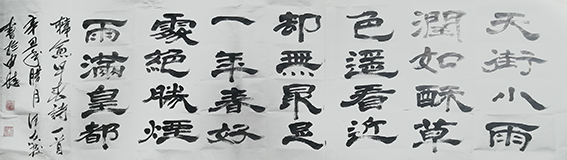 天街小雨
潤如酥草
色遥看近
却無最是
一年春好
處絶勝煙
雨滿皇都
韓愈早春詩一首
辛丑歲腊月
書於